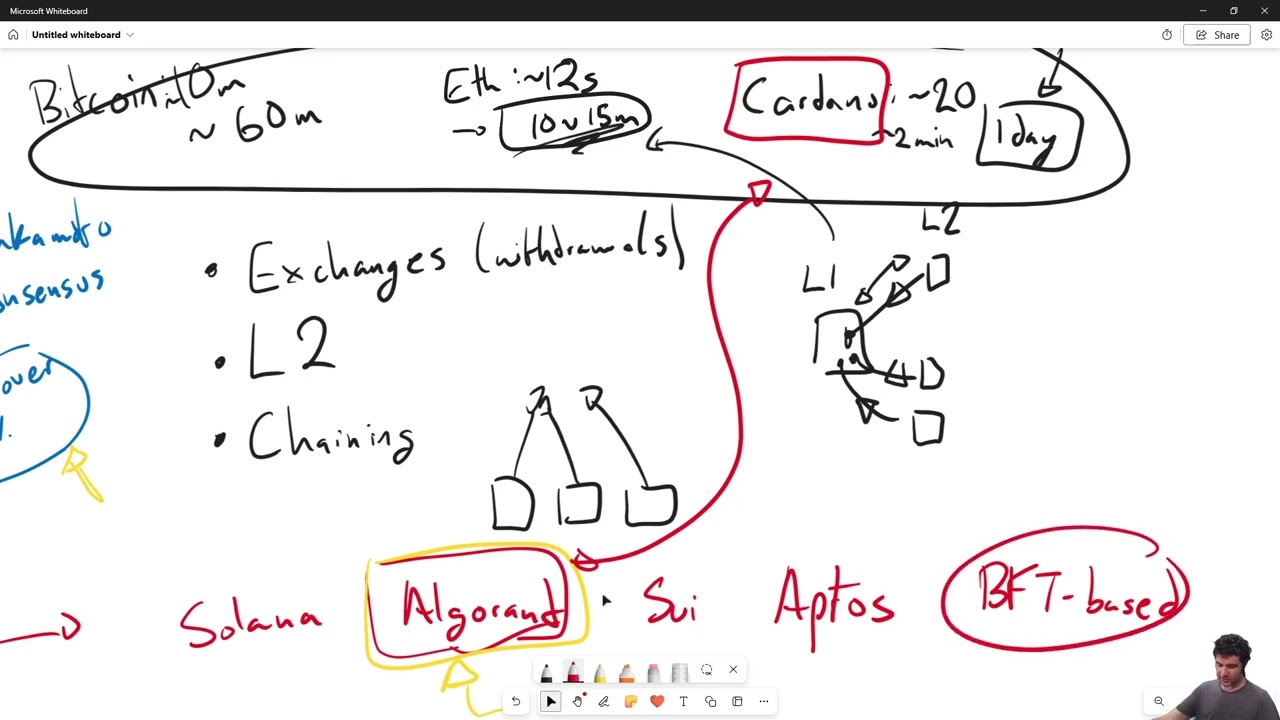 Microsoft Whiteboard
Untitled whiteboard
Share
Bitcoin: ~10m
~ 60m
Eth: ~12s
→ 10 ~ 15m
Cardano: ~20
~2 min
1 day
L2
L1
nkamoto
onsensus
over
%.
• Exchanges (withdrawals)
• L2
• Chaining
Solana
Algorand
Sui
Aptos
BFT-based